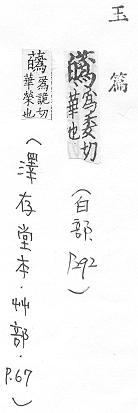 玉篇
蘤爲委切
華也
(白部 P.292)
蘤爲詭切
華榮也
(澤存堂本.艸部.P.67)